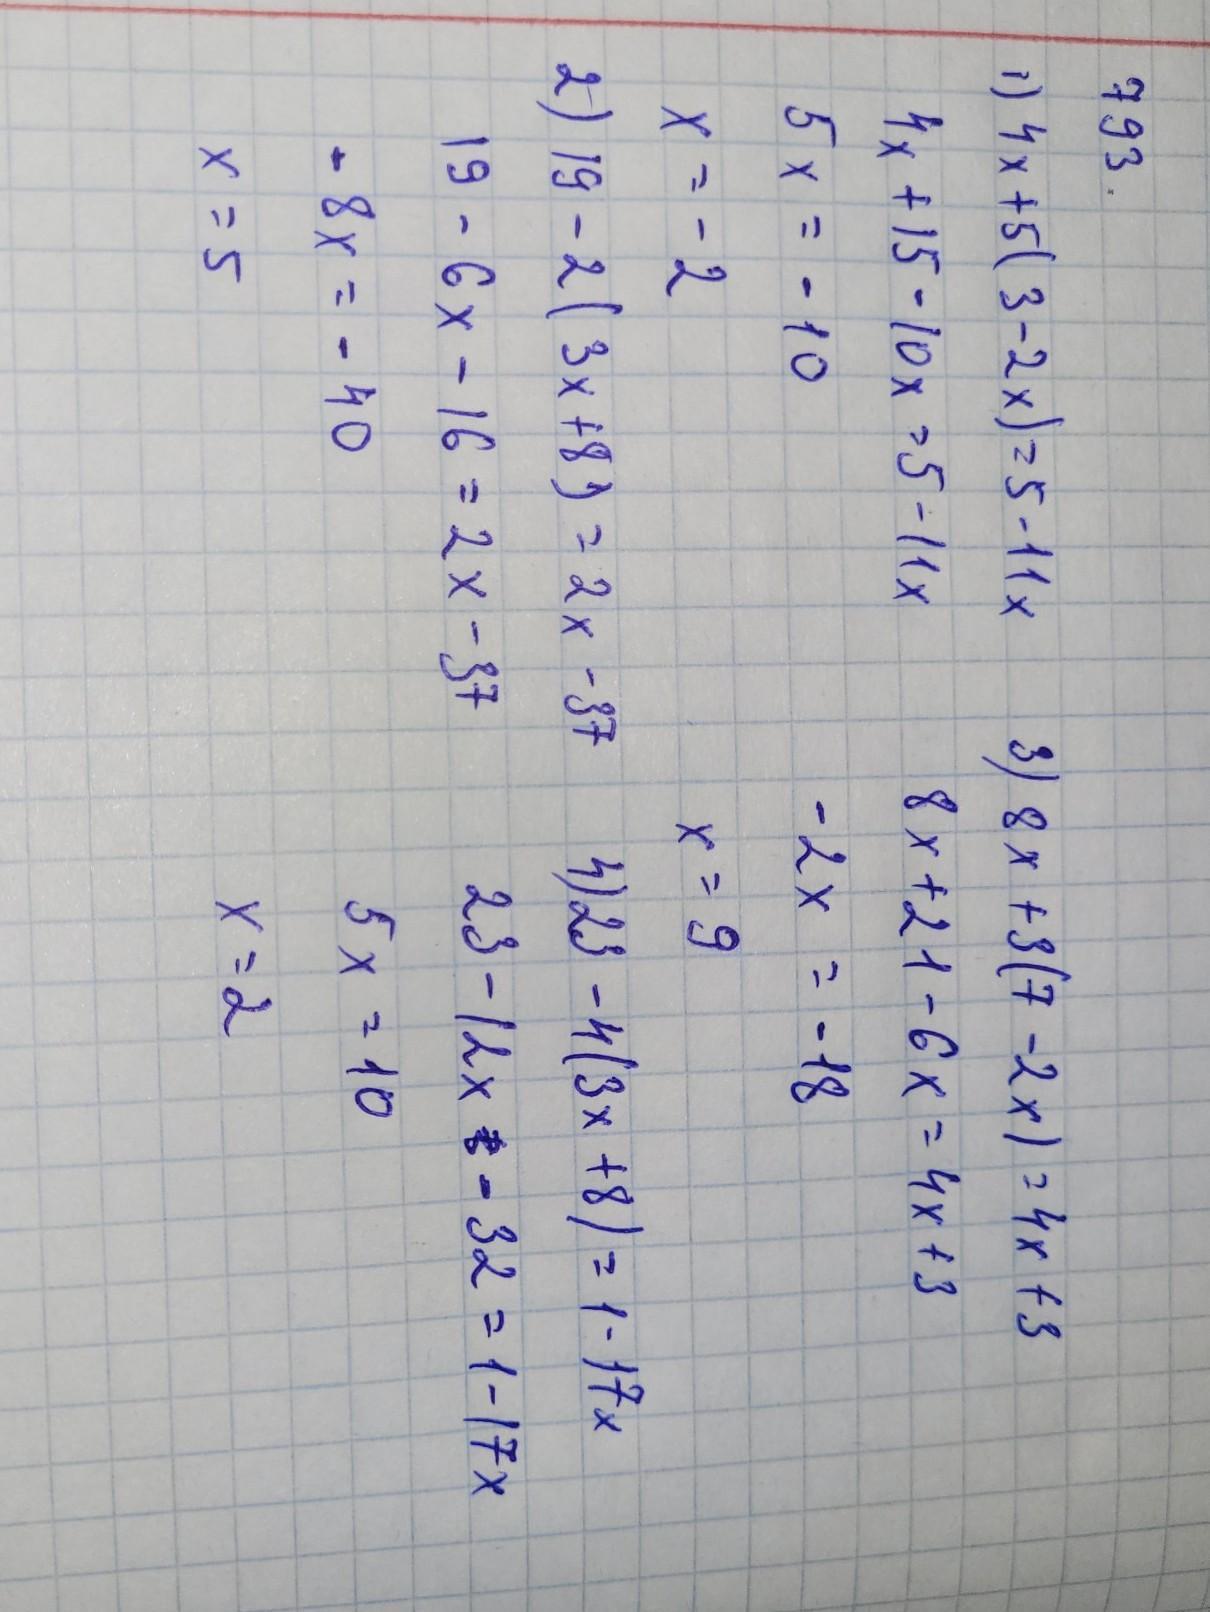 793.
1) 4x+5(3-2x)=5-11x
4x+15-10x=5-11x
5x=-10
x=-2
2) 19-2(3x+8)=2x-37
19-6x-16=2x-37
-8x=-40
x=5
3) 8x+3(7-2x)=4x+3
8x+21-6x=4x+3
-2x=-18
x=9
4) 23-4(3x+8)=1-17x
23-12x-32=1-17x
5x=10
x=2